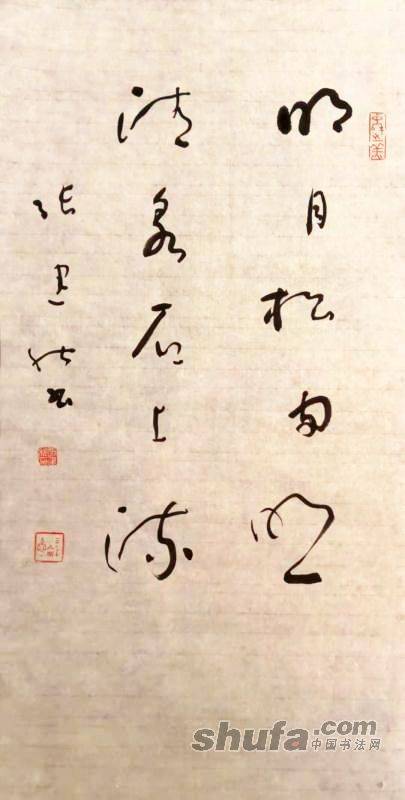 明月松间照
清泉石上流
张
shufa.com
中国书法网